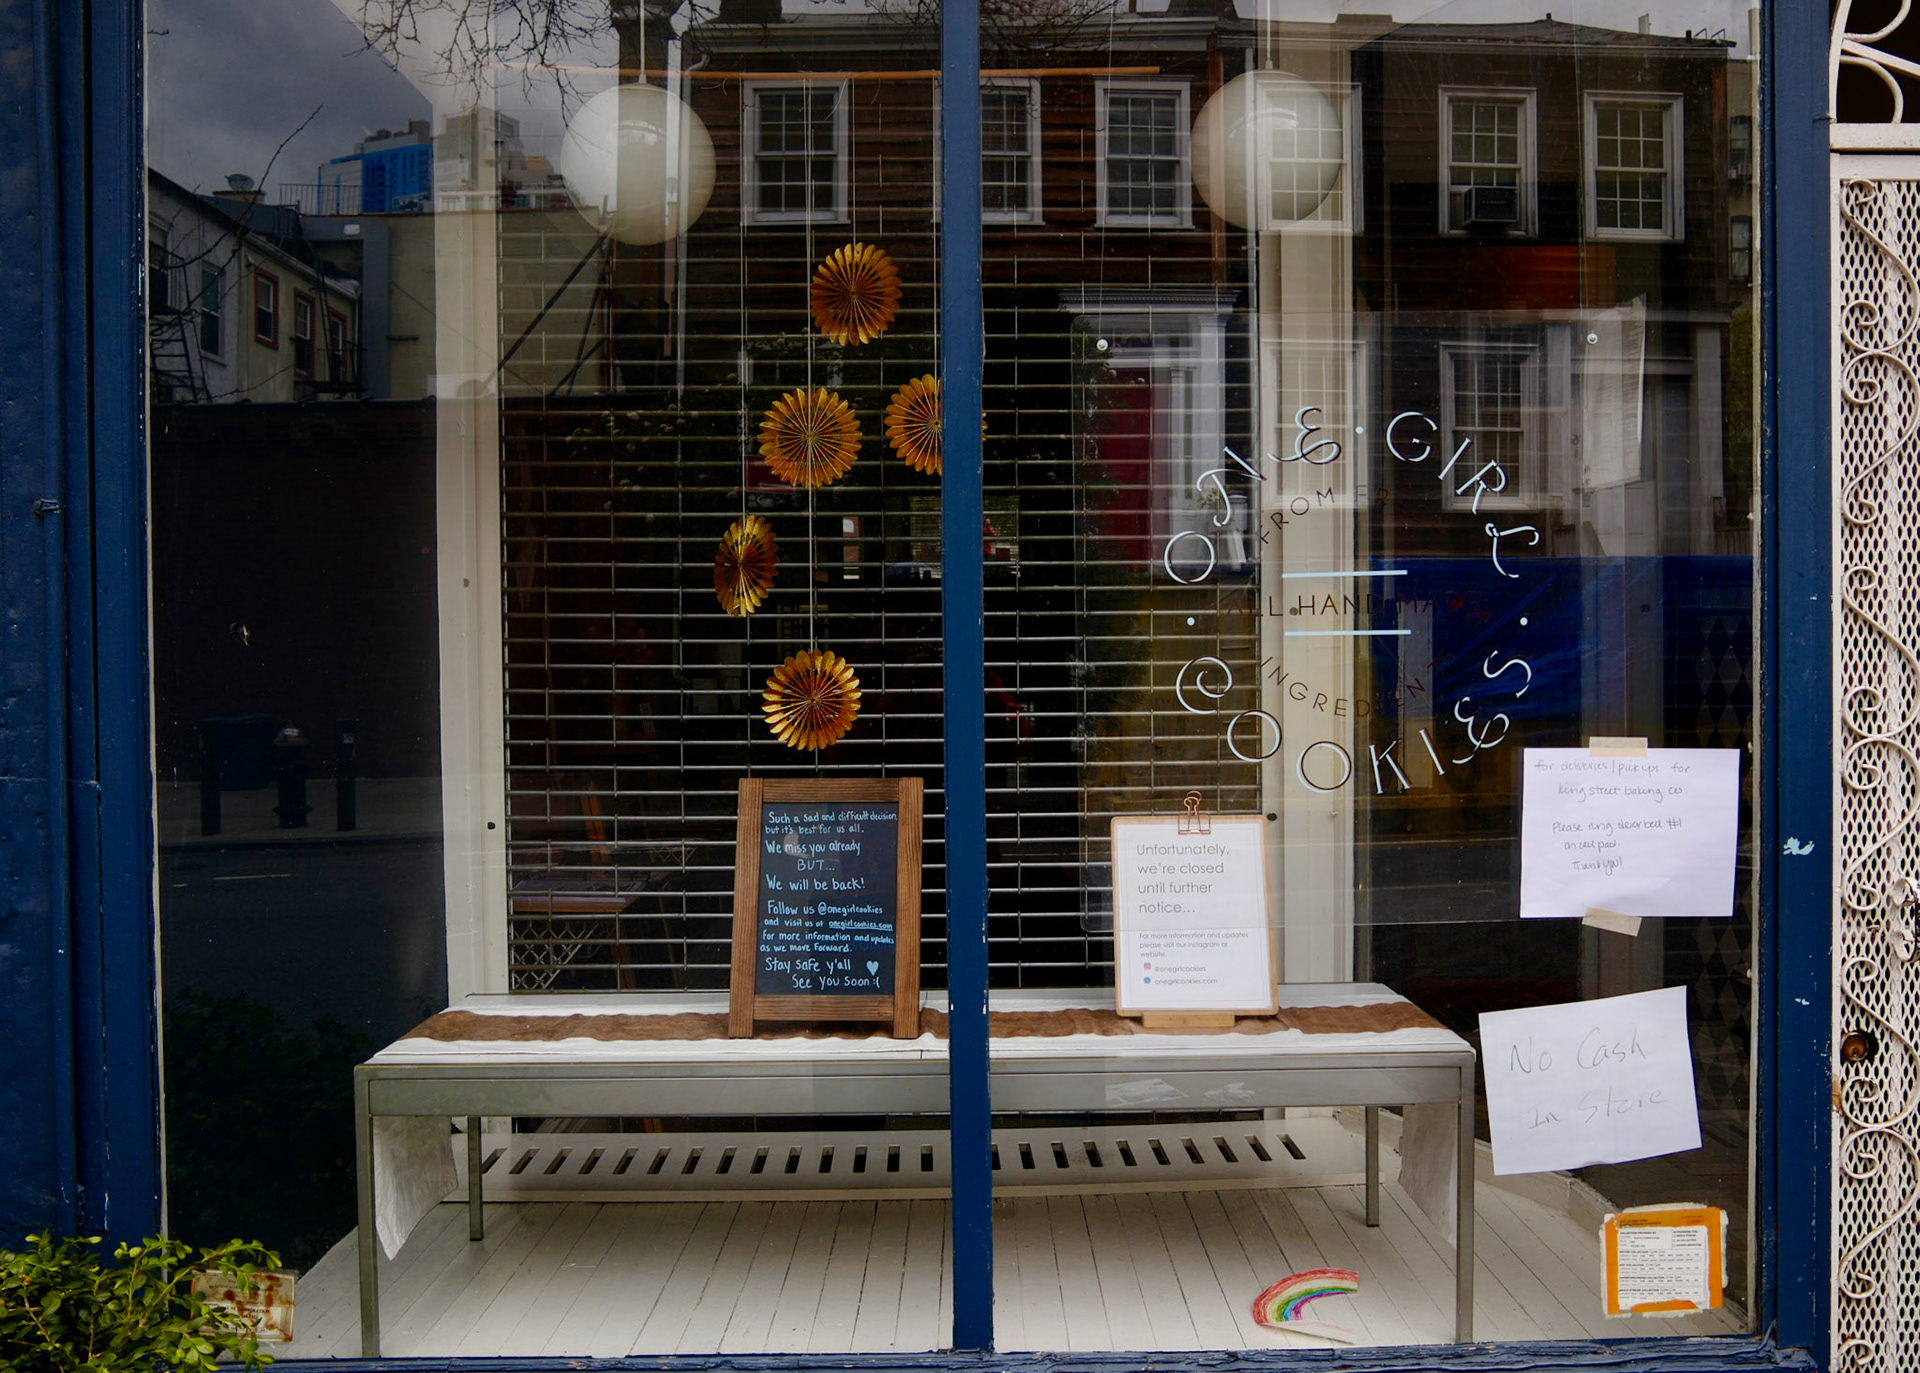 ONE · GIRL
· COOKIES ·
FROM
ALL HAND MADE
INGREDIEN
Such a sad and difficult decision,
but it's best for us all.
We miss you already
BUT...
We will be back!
Follow us @onegirlcookies
and visit us at onegirlcookies.com
for more information and updates
as we move forward.
Stay safe y'all
See you soon :(
Unfortunately,
we're closed
until further
notice...
For more information and updates
please visit our Instagram or
website.
@onegirlcookies
onegirlcookies.com
for deliveries/pickups for
king street baking co.
Please ring doorbell #1
on call pad.
Thank you!
No Cash
In Store